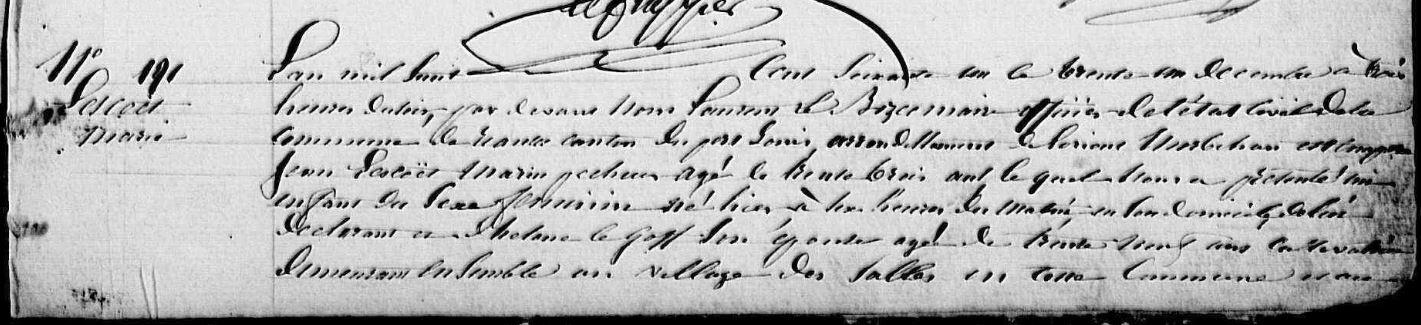 N° 191
Lescoët
Marie
L'an mil huit Cent Soixante un le trente un decembre à trois
heures du soir par devant Nous Laurent Le Bozec maire officier de l'état Civil de la
Commune de riantec canton du port Louis arrondissement de Lorient Morbihan est comparu
Jean Lescoët Marin pecheur agé de trente trois ans le quel Nous a présenté un
enfant du Sexe féminin né hier à heures du matin, en Son domicile de lui
declarant et d'helene le Goff Son épouse agé de trente Neuf ans
demeurant ensemble au village des Salles en cette Commune